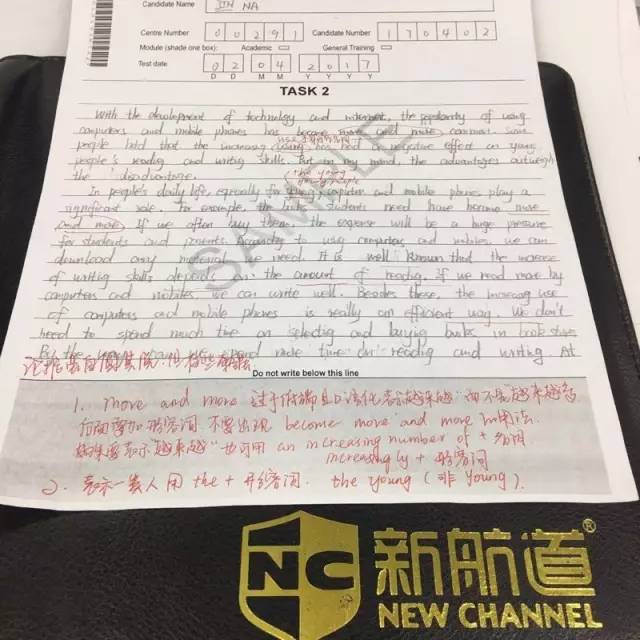 Candidate Name JIN NA
Centre Number 0 0 2 9 1 Candidate Number 1 7 0 4 0 2
Module (shade one box): Academic General Training
Test date 0 2 0 4 2 0 1 7
D D M M Y Y Y Y
TASK 2
SAMPLE
With the development of technology and internet, the popularity of using
computers and mobile phones has become more and more common. Some
people hold that the increasing using has negative effect on young
people's reading and writing skills. But in my mind, the advantages outweigh
the disadvantage.
the young
In people's daily life, especially for computers and mobile phones play a
significant role. For example, the students need have become more
and more. If we often buy them the expense will be a huge pressure
for students and parents. According to using computers and mobiles, we can
download any material we need. It is well known that the increase
of writing skills depends the amount of reading. If we read more by
computers and mobiles, we can write well. Besides these, the increasing use
of computers and mobile phones is really an efficient way. We don't
need to spend much time on selecting and buying books in book stores
spend more time on reading and writing. At
Do not write below this line
1. more and more 过于 口语化 表示越来越 而不是越来越多
后面要加形容词 不要出现 become more and more 的用法
表示"越来越" 也可用 an increasing number of + 名词
increasingly + 形容词
2. 表示一类人用 the + 形容词. the young (非 young).
NC 新航道®
NEW CHANNEL